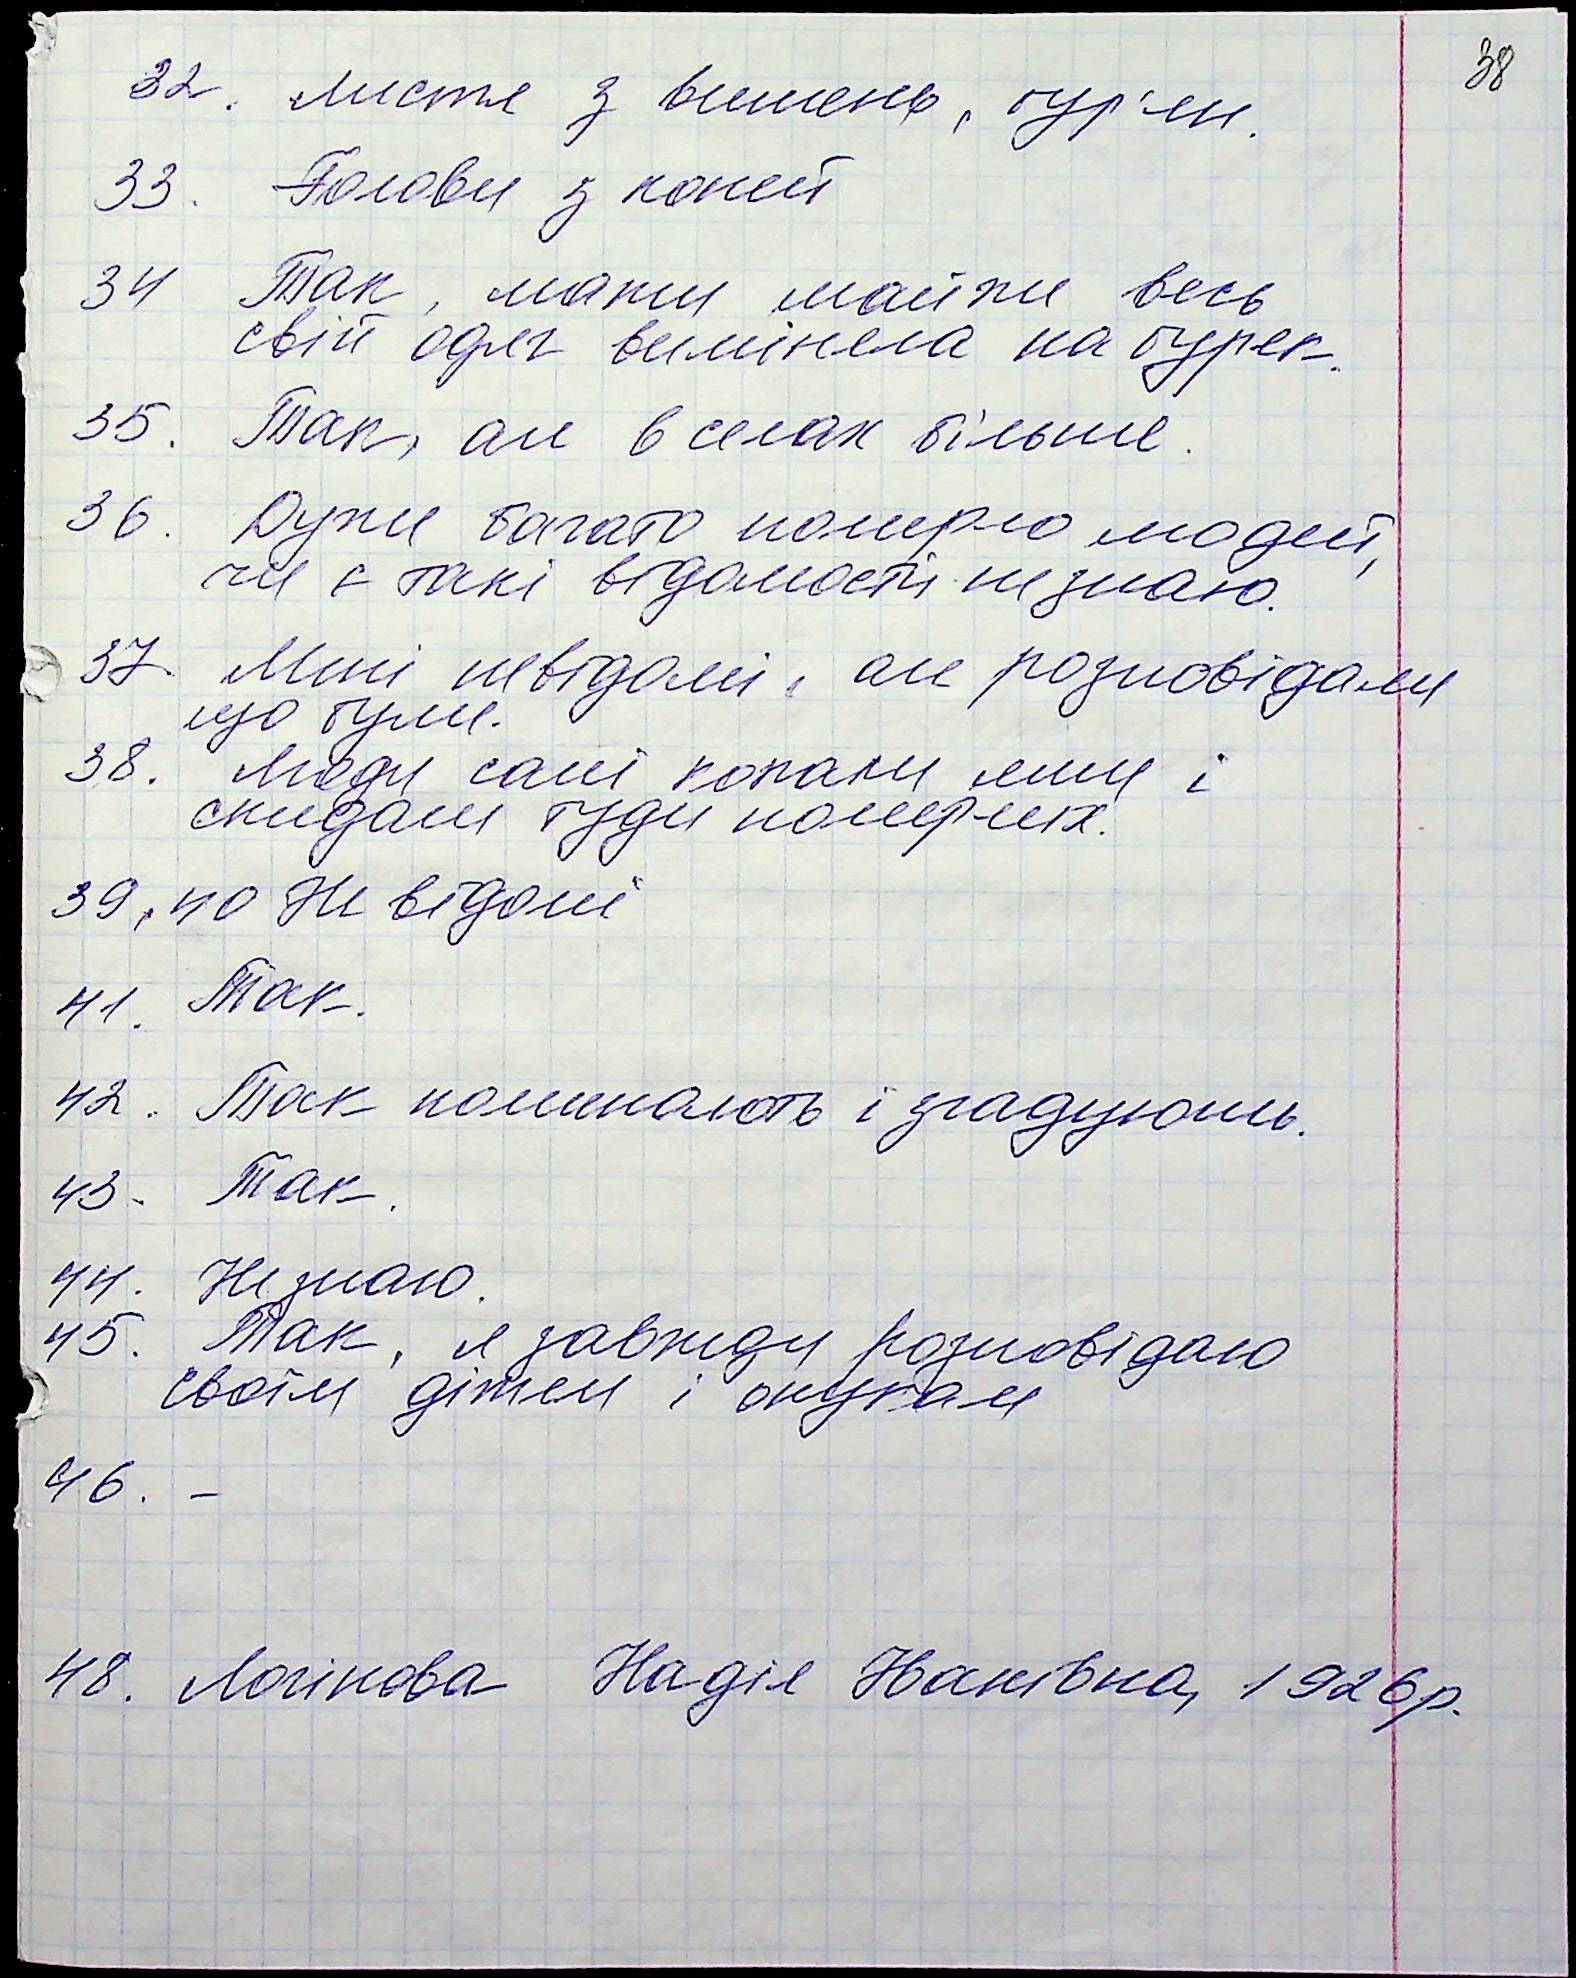 38
32. Листя з вишень, бур'ян.
33. Голови з коней
34 Так, мати майже весь
свій одяг виміняла на буряк.
35. Так, але в селах більше.
36. Дуже багато померло людей,
чи є такі відомості не знаю.
37. Мені невідомі, але розповідали
що були.
38. Люди самі копали ями і
скидали туди померших.
39, 40 Не відомі
41. Так.
42. Так поминають і згадують.
43. Так.
44. Не знаю.
45. Так, я завжди розповідаю
своїм дітям і онукам
46. –
48. Логінова Надія Іванівна, 1926 р.